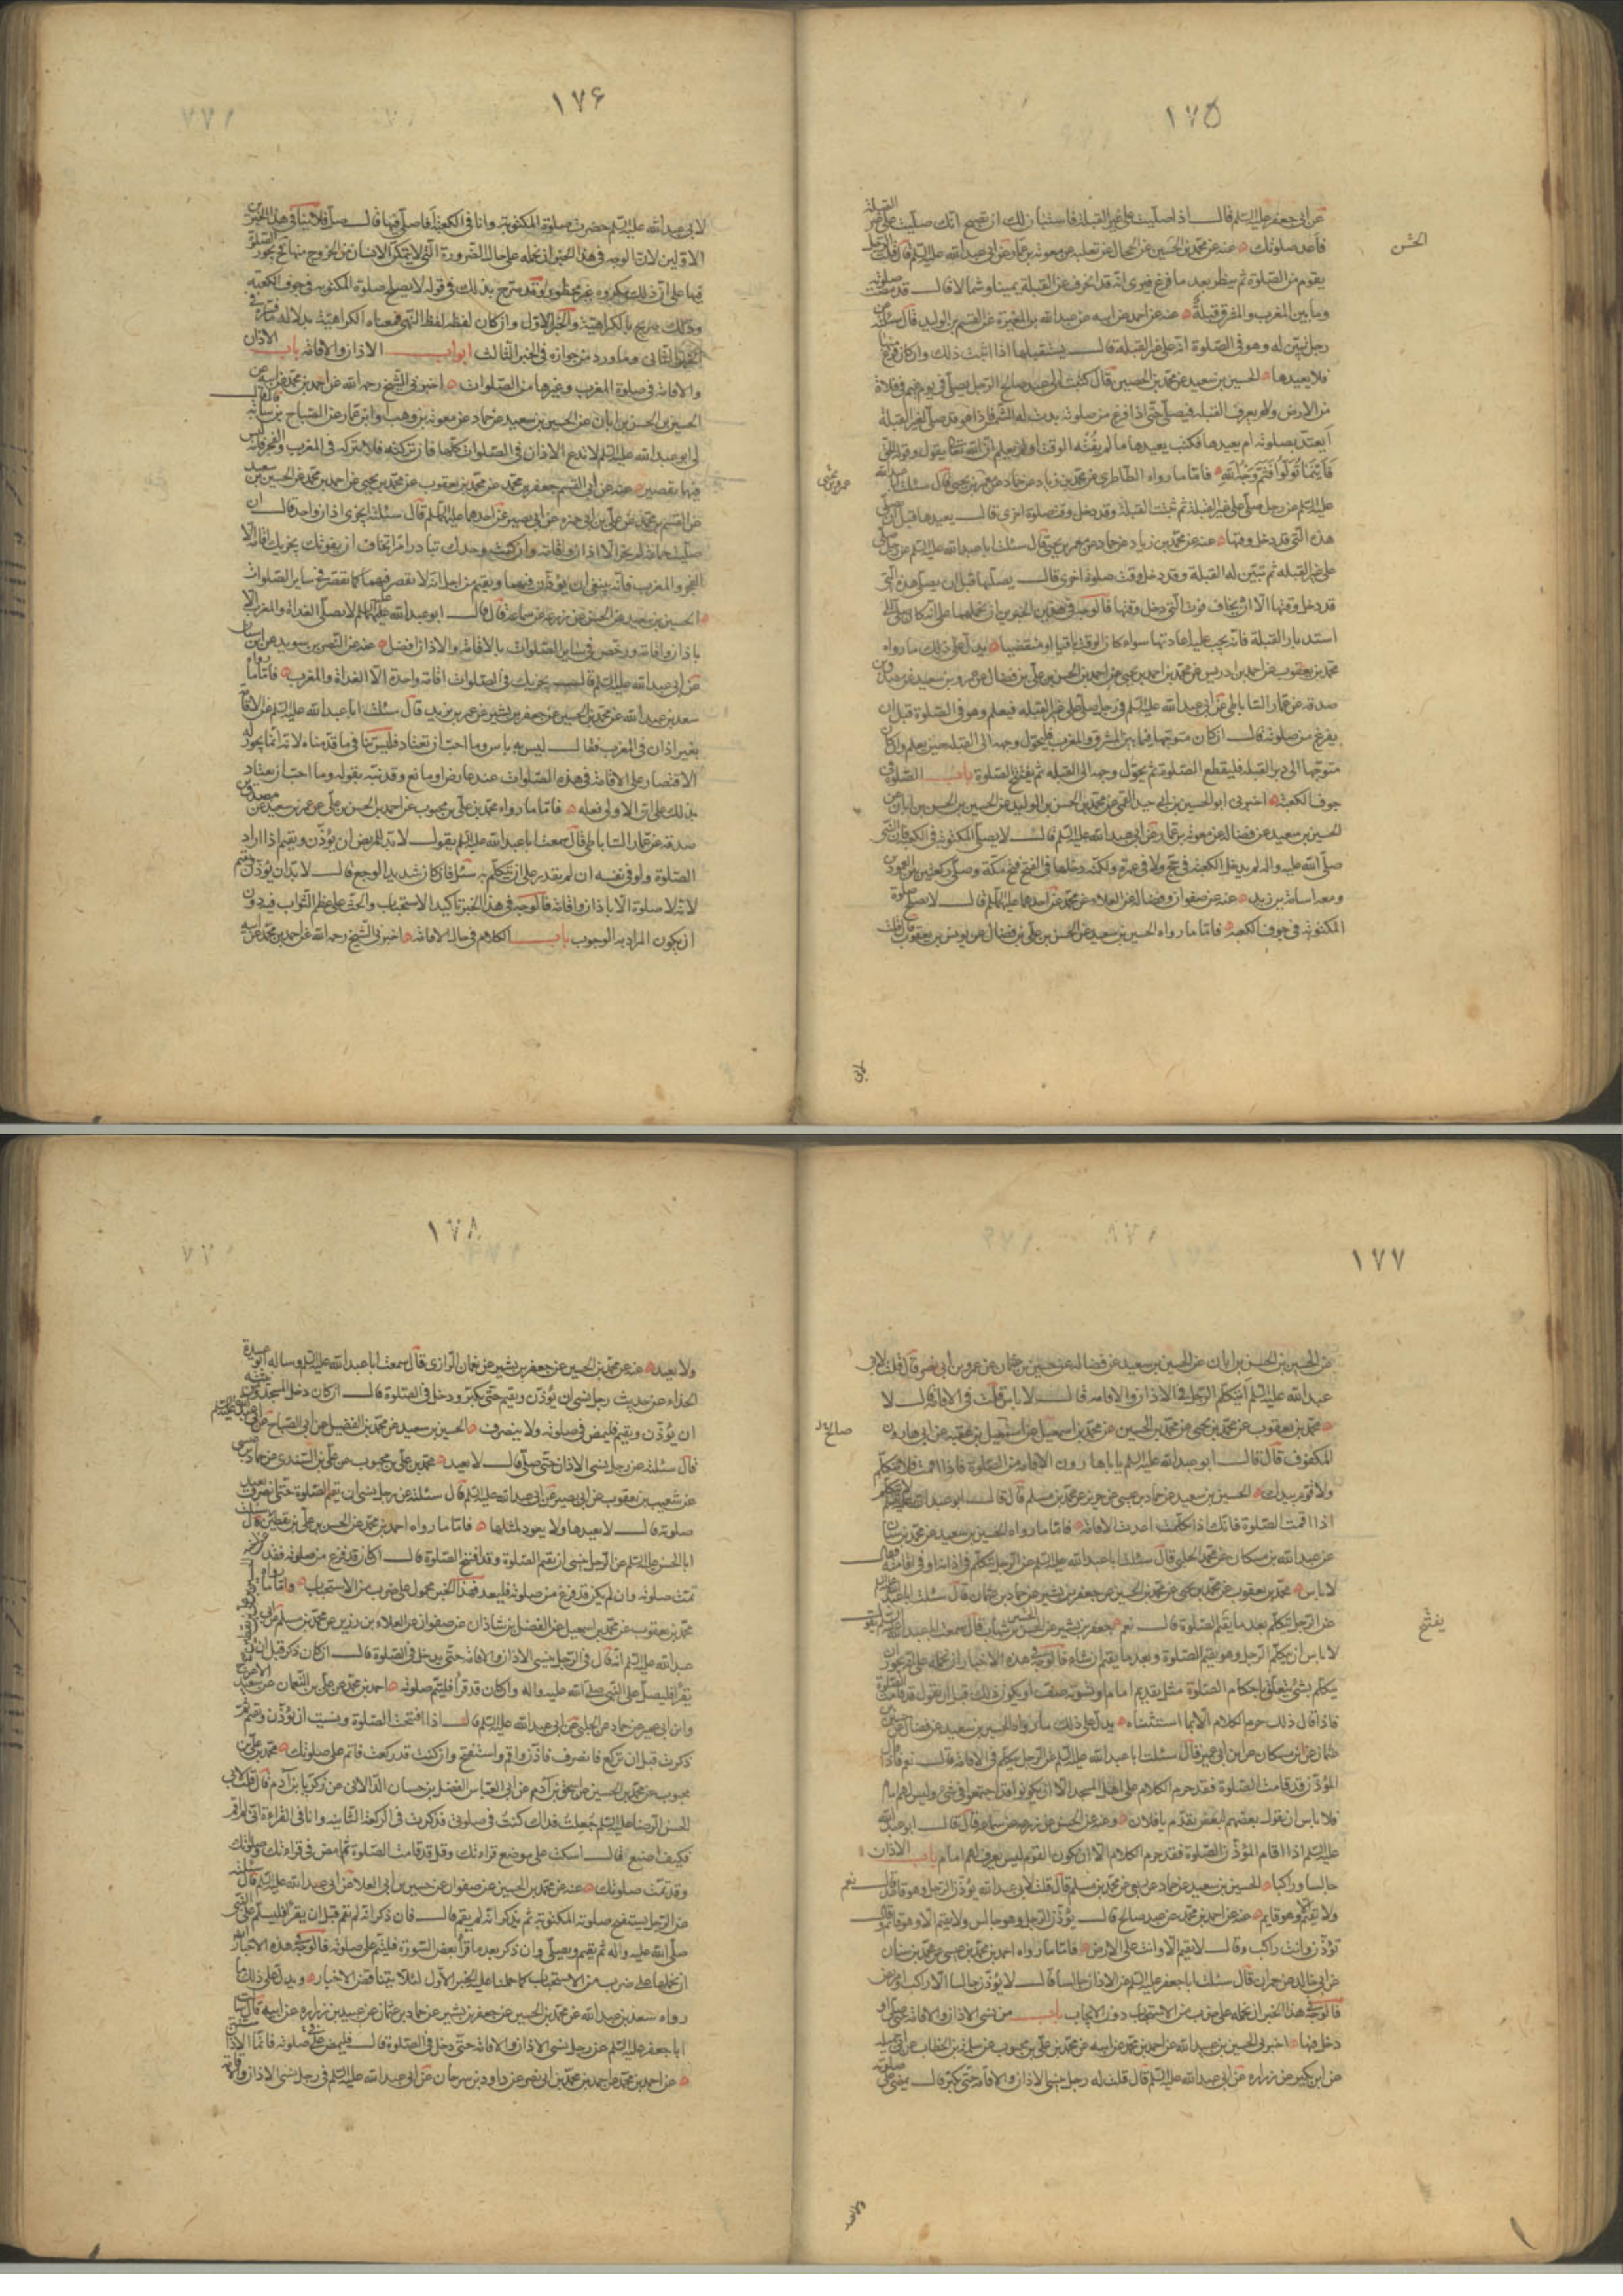 ١٧٥
عن ابى جعفر عليه السلم قال اذا صليت على غير القبلة فاستبان لك ان تصبح انك صليت على غير القبلة
فاعد صلوتك عنه عن محمد بن الحسين عن الحجال عن ثعلبه عن معوية بن عمار عن ابى عبد الله عليه السلم قال قلت الرجل
الحسن
يقوم من الصلوة ثم ينظر بعد ما فرغ فيرى انه قد انحرف عن القبلة يمينا وشمالا قال قد مضت صلوته
وما بين المغرب والمشرق قبلة عنه عن احمد عن ابيه عن عبد الله بن المغيرة عن القسم بن الوليد قال سئلته عن
رجل تبين له وهو فى الصلوة انه على غير القبلة قال يستقبلها اذا اثبت ذلك وان كان فرغ منها
فلا يعيدها الحسين بن سعيد عن محمد بن الحصين قال كتبت الى عبد صالح الرجل يصلى فى يوم غيم فى فلاة
من الارض ولا يعرف القبله فيصلى حتى اذا فرغ من صلوته بدت له الشمس فاذا هو قد صلى لغير القبلة
ايعتد بصلوته ام يعيدها فكتب يعيدها ما لم يفته الوقت اولم يعلم ان الله تعالى يقول وقوله الحق
فاينما تولوا فثم وجه الله فاما ما رواه الطاطرى عن محمد بن زياد عن حماد عن عمرو بن يحيى قال سئلت ابا عبد الله
عمرو بن يحيى
عليه السلم عن رجل صلى على غير القبلة ثم تبينت القبلة وقد دخل وقت صلوة اخرى قال يعيدها قبل ان يصلى
هذه التى قد دخل وقتها عنه عن محمد بن زياد عن حماد عن معمر بن يحيى قال سئلت ابا عبد الله عليه السلم عن رجل صلى
على غير القبله ثم تبين له القبلة وقد دخل وقت صلوة اخرى قال يصليها قبل ان يصلى هذه التى
قد دخل وقتها الا ان يخاف فوت التى دخل وقتها فالوجه فى هذين الخبرين ان نحملهما على انه كان صلى الى
استدبار القبلة فانه يجب عليه اعادتها سواء كان الوقت باقيا او منقضيا يدل على ذلك ما رواه
محمد بن يعقوب عن احمد بن ادريس عن محمد بن احمد بن يحيى عن احمد بن الحسن بن على بن فضال عن عمرو بن سعيد عن مصدق بن
صدقه عن عمار الساباطى عن ابى عبد الله عليه السلم فى رجل صلى على غير القبله فيعلم وهو فى الصلوة قبل ان
يفرغ من صلوته قال ان كان متوجها فيما بين المشرق والمغرب فليحول وجهه الى القبله حين يعلم وان كان
متوجها الى دبر القبله فليقطع الصلوة ثم يحول وجهه الى القبله ثم يفتتح الصلوة باب الصلوة فى
جوف الكعبة اخبرنى ابو الحسين بن ابى جيد القمى عن محمد بن الحسن بن الوليد عن الحسين بن الحسن بن ابان عن
الحسين بن سعيد عن فضاله عن معوية بن عمار عن ابى عبد الله عليه السلم قال لا يصلى المكتوبة فى الكعبة فان النبى
صلى الله عليه واله لم يدخل الكعبة فى حج ولا فى عمرة ولكنه دخلها فى الفتح فتح مكة وصلى ركعتين بين العمودين
ومعه اسامة بن زيد عنه عن صفوان وفضاله عن العلاء عن محمد عن احدهما عليهما السلم قال لا يصلح صلوة
المكتوبة فى جوف الكعبة فاما ما رواه الحسين بن سعيد عن الحسن بن على بن فضال عن يونس بن يعقوب قال قلت
١٧۶
لابى عبد الله عليه السلم حضرت صلوة المكتوبة وانا فى الكعبة افاصلى فيها قال صل فلا ينافى هذا الخبر
الاولين لان الوجه فى هذا الخبر ان نحمله على حال الضرورة التى لا يتمكن الانسان من الخروج منها فح يجوز الصلوة
فيها على ان ذلك مكروه غير محظور وقد صرح بذلك فى قوله لا يصلح صلوة المكتوبه فى جوف الكعبة
وذلك صريح بالكراهية والخبر الاول وان كان لفظه لفظ النهى فمعناه الكراهية بدلالة ما فسره فى
الخبر الثانى وما ورد من جوازه فى الخبر الثالث ابواب الاذان والاقامة باب الاذان
والاقامة فى صلوة المغرب وغيرها من الصلوات اخبرنى الشيخ رحمه الله عن احمد بن محمد عن ابيه عن
الحسين بن الحسن بن ابان عن الحسين بن سعيد عن حماد عن معوية بن وهب او ابن عمار عن الصباح بن سيابة قال قال
لى ابو عبد الله عليه السلم لا تدع الاذان فى الصلوات كلها فان تركته فلا تتركه فى المغرب والفجر فانه ليس
فيهما تقصير عنه عن ابى القسم جعفر بن محمد عن محمد بن يعقوب عن محمد بن يحيى عن احمد بن محمد عن الحسين بن سعيد
عن القسم بن محمد عن على بن ابى حمزه عن ابى بصير عن احدهما عليهما السلم قال سئلته ايجزى اذان واحد قال ان
صليت جماعة لم يجز الا اذان واقامة وان كنت وحدك تبادر امرا تخاف ان يفوتك يجزيك اقامة الا
الفجر والمغرب فانه ينبغى ان يؤذن فيهما ويقيم من اجل انه لا تقصر فيهما كما تقصر فى ساير الصلوات
الحسين بن سعيد عن الحسن عن زرعه عن سماعة قال قال ابو عبد الله عليه السلم لا يصلى الغداة والمغرب الا
باذان واقامة ورخص فى ساير الصلوات بالاقامة والاذان افضل عنه عن النضر بن سويد عن ابن سنان
عن ابى عبد الله عليه السلم قال يجزيك فى الصلوات اقامة واحدة الا الغداة والمغرب فاما ما رواه
سعد بن عبد الله عن محمد بن الحسين عن جعفر بن بشير عن عمر بن يزيد قال سئلت ابا عبد الله عليه السلم عن الاقامة
بغير اذان فى المغرب فقال ليس به باس وما احب ان تعتاد فليس ينافى ما قدمناه لانه انما يجوز له
الاقتصار على الاقامة فى هذه الصلوات عند عارض او مانع وقد نبه بقوله وما احب ان يعتاد
بذلك على ان الاولى فعله فاما ما رواه محمد بن على بن محبوب عن احمد بن الحسن بن على عن عمرو بن سعيد عن مصدق بن
صدقة عن عمار الساباطى قال سمعت ابا عبد الله عليه السلم يقول لا بد للمريض ان يؤذن ويقيم اذا اراد
الصلوة ولو فى نفسه ان لم يقدر على ان يتكلم به سئل فان كان شديد الوجع قال لا بد ان يؤذن ويقيم
لانه لا صلوة الا باذان واقامة فالوجه فى هذا الخبر تاكيد الاستحباب والحث على عظم الثواب فيه دون
ان يكون المراد به الوجوب باب الكلام فى حال الاقامة اخبرنى الشيخ رحمه الله عن احمد بن محمد عن ابيه
١٧٧
عن الحسين بن الحسن بن ابان عن الحسين بن سعيد عن فضاله عن حسين بن عثمان عن عمرو بن ابى نصر قال قلت لابى
عبد الله عليه السلم ايتكلم الرجل فى الاذان والاقامة قال لا باس قلت فى الاقامة قال لا
محمد بن يعقوب عن محمد بن يحيى عن محمد بن الحسين عن محمد بن اسمعيل عن اسمعيل بن عقبه عن ابى هارون
صالح
المكفوف قال قال ابو عبد الله عليه السلم يا با هارون الاقامة من الصلوة فاذا اقمت فلا تتكلم
ولا تؤم بيدك الحسين بن سعيد عن حماد بن عيسى عن حريز عن محمد بن مسلم قال قال ابو عبد الله عليه السلم لا تتكلم
اذا اقمت الصلوة فانك اذا تكلمت اعدت الاقامة فاما ما رواه الحسين بن سعيد عن محمد بن سنان
عن عبد الله بن مسكان عن محمد الحلبى قال سئلت ابا عبد الله عليه السلم عن الرجل يتكلم فى اذانه او فى اقامته فقال
لا باس محمد بن يعقوب عن محمد بن يحيى عن محمد بن الحسين عن جعفر بن بشير عن حماد بن عثمان قال سئلت ابا عبد الله
عن الرجل يتكلم بعد ما يقيم الصلوة قال نعم جعفر بن بشير عن الحسن بن شهاب قال سمعت ابا عبد الله عليه السلم يقول
يفتتح
لا باس ان يتكلم الرجل وهو يقيم الصلوة وبعد ما يقيم ان شاء فالوجه فى هذه الاخبار ان نحمله على انه يجوز ان
يتكلم بشئ يتعلق باحكام الصلوة مثل تقديم امام او تسوية صف او يكون ذلك قبل ان يقول قد قامت الصلوة
فاذا قال ذلك حرم الكلام الا بما استثنيناه يدل على ذلك ما رواه الحسين بن سعيد عن فضاله عن حسين بن
عثمان عن ابن مسكان عن ابن ابى عمير قال سئلت ابا عبد الله عليه السلم عن الرجل يتكلم فى الاقامة قال نعم فاذا قال
المؤذن قد قامت الصلوة فقد حرم الكلام على اهل المسجد الا ان يكونوا قد اجتمعوا من شتى وليس لهم امام
فلا باس ان يقول بعضهم لبعض تقدم يا فلان وعنه عن الحسن عن زرعه عن سماعة قال قال ابو عبد الله
عليه السلم اذا اقام المؤذن الصلوة فقد حرم الكلام الا ان يكون القوم ليس يعرف لهم امام باب الاذان
جالسا وراكبا الحسين بن سعيد عن حماد عن ربعى عن محمد بن مسلم قال قلت لابى عبد الله يؤذن الرجل وهو قاعد قال نعم
ولا تقيم وهو قايم عنه عن احمد بن محمد عن عبد صالح قال يؤذن الرجل وهو جالس ولا يقيم الا وهو قائم وقال
تؤذن وانت راكب وقال لا تقيم الا وانت على الارض فاما ما رواه احمد بن محمد بن عيسى عن محمد بن سنان
عن ابى خالد عن حمران قال سئلت ابا جعفر عليه السلم عن الاذان جالسا قال لا يؤذن جالسا الا راكب او مريض
فالوجه فى هذا الخبر ان نحمله على ضرب من الاستحباب دون الايجاب باب من نسى الاذان والاقامة حتى صلى او
دخل فيها اخبرنى الحسين بن عبيد الله عن احمد بن محمد عن ابيه عن محمد بن على بن محبوب عن سلمة بن الخطاب عن ابى جميله
عن ابن بكير عن زراره عن ابى عبد الله عليه السلم قال قلت له رجل ينسى الاذان والاقامة حتى يكبر قال يمضى على صلوته
ولا يعيد
١٧٨
ولا يعيد عنه عن محمد بن الحسين عن جعفر بن بشير عن نعمان الرازى قال سمعت ابا عبد الله عليه السلم وساله ابو عبيدة
الحذاء عن حديث رجل نسى ان يؤذن ويقيم حتى يكبر ودخل فى الصلوة قال ان كان دخل المسجد ومن نيته
ان يؤذن ويقيم فليمض فى صلوته ولا ينصرف الحسين بن سعيد عن محمد بن الفضيل عن ابى الصباح عن ابى عبد الله عليه السلم
قال سئلته عن رجل نسى الاذان حتى صلى قال لا يعيد محمد بن على بن محبوب عن على بن السندى عن حماد بن عيسى
عن شعيب بن يعقوب عن ابى بصير عن ابى عبد الله عليه السلم قال سئلته عن رجل نسى ان يقيم الصلوة حتى انصرف يعيد
صلوته قال لا يعيدها ولا يعود لمثلها فاما ما رواه احمد بن محمد عن الحسن بن على بن يقطين قال سئلت
ابا الحسن عليه السلم عن الرجل ينسى ان يقيم الصلوة وقد افتتح الصلوة قال ان كان قد فرغ من صلوته فقد
تمت صلوته وان لم يكن قد فرغ من صلوته فليعد فهذا الخبر محمول على ضرب من الاستحباب واما ما رواه
محمد بن يعقوب عن محمد بن اسمعيل عن الفضل بن شاذان عن صفوان عن العلاء بن رزين عن محمد بن مسلم عن ابى
عبد الله عليه السلم انه قال فى الرجل ينسى الاذان والاقامة حتى يدخل فى الصلوة قال ان كان ذكر قبل ان
يقرأ فليصل على النبى صلى الله عليه واله وان كان قد قرأ فليتم صلوته احمد بن محمد عن على بن النعمان عن سعيد الاعرج
وابن ابى عمير عن حماد عن الحلبى عن ابى عبد الله عليه السلم قال اذا افتتحت الصلوة ونسيت ان تؤذن وتقيم ثم
ذكرت قبل ان تركع فانصرف فاذن واقم واستفتح وان كنت قد ركعت فاتم على صلوتك محمد بن على بن
محبوب عن محمد بن الحسين عن اسحق بن آدم عن ابى العباس الفضل بن حسان الدالانى عن زكريا بن آدم قال قلت لابى
الحسن الرضا عليه السلم جعلت فداك كنت فى صلوتى فذكرت فى الركعة الثانيه وانا فى القراءة انى لم اقم
فكيف اصنع قال اسكت على موضع قراءتك وقل قد قامت الصلوة ثم امض فى قراءتك وصلوتك
وقد تمت صلوتك عنه عن محمد بن الحسين عن صفوان عن حسين بن ابى العلا عن ابى عبد الله عليه السلم قال سئلته
عن الرجل يستفتح صلوته المكتوبة ثم يذكر انه لم يقم قال فان ذكر انه لم يقم قبل ان يقرأ فليسلم على النبى
صلى الله عليه واله ثم يقيم ويصلى وان ذكر بعد ما قرأ بعض السورة فليتم على صلوته فالوجه فى هذه الاخبار
ان نحملها على ضرب من الاستحباب كما حملنا عليه الخبر الاول لئلا يتناقض الاخبار ويدل على ذلك ما
رواه سعد بن عبد الله عن محمد بن الحسين عن جعفر بن بشير عن حماد بن عثمان عن عبيد بن زراره عن ابيه قال سئلت
ابا جعفر عليه السلم عن رجل نسى الاذان والاقامة حتى دخل فى الصلوة قال فليمض على صلوته فانما الاذان سنة
عن احمد بن محمد عن احمد بن محمد بن ابى نصر عن داود بن سرحان عن ابى عبد الله عليه السلم فى رجل نسى الاذان والاقامة